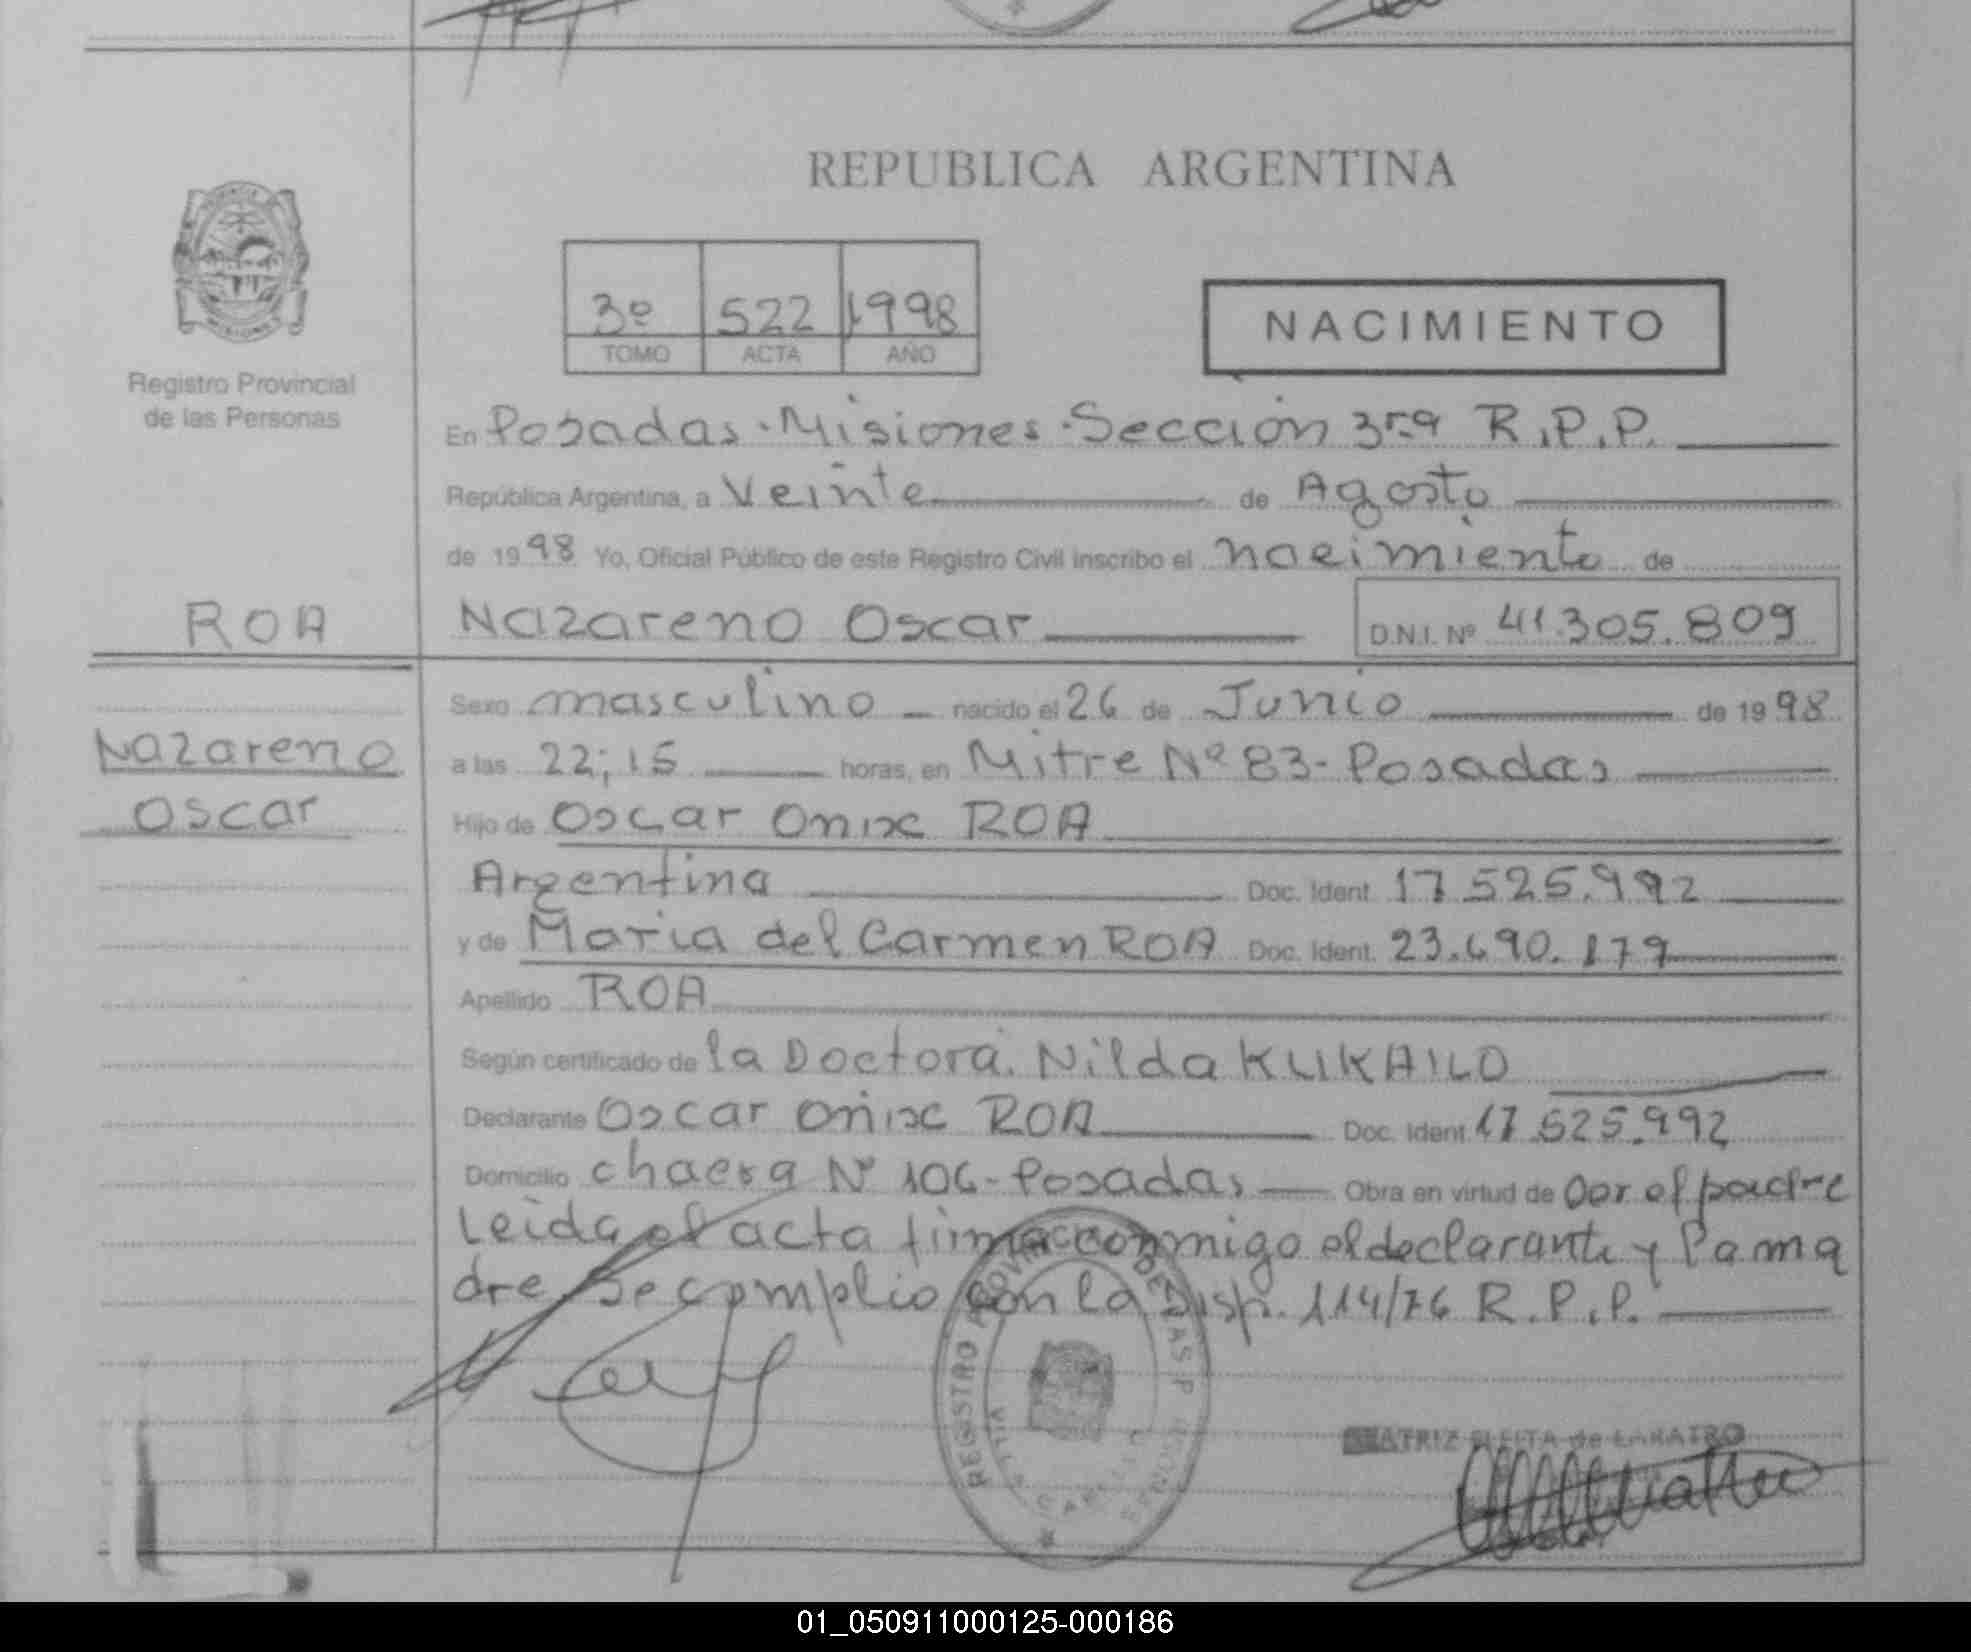 REPUBLICA ARGENTINA
3º 522 1998
TOMO ACTA AÑO
NACIMIENTO
Registro Provincial
de las Personas
En Posadas.Misiones.Sección 3ra R.P.P.
República Argentina, a Veinte de Agosto
de 1998 Yo, Oficial Público de este Registro Civil inscribo el nacimiento de
ROA
Nazareno Oscar D.N.I. Nº 41.305.809
Sexo masculino nacido el 26 de Junio de 1998
Nazareno
Oscar
a las 22;15 horas, en Mitre Nº 83-Posadas
Hijo de Oscar Onix ROA
Argentina Doc. Ident. 17.525.992
y de Maria del Carmen ROA Doc. Ident. 23.690.179
Apellido ROA
Según certificado de la Doctora. Nilda KUKAILO
Declarante Oscar Onix ROA Doc. Ident. 17.525.992
Domicilio chacra Nº 106-Posadas Obra en virtud de ser el padre
Leida el acta firma conmigo el declarante y la ma
dre. Se cumplio con la Disp. 114/76 R.P.P.
REGISTRO DE LAS P
BEATRIZ de
01_050911000125-000186